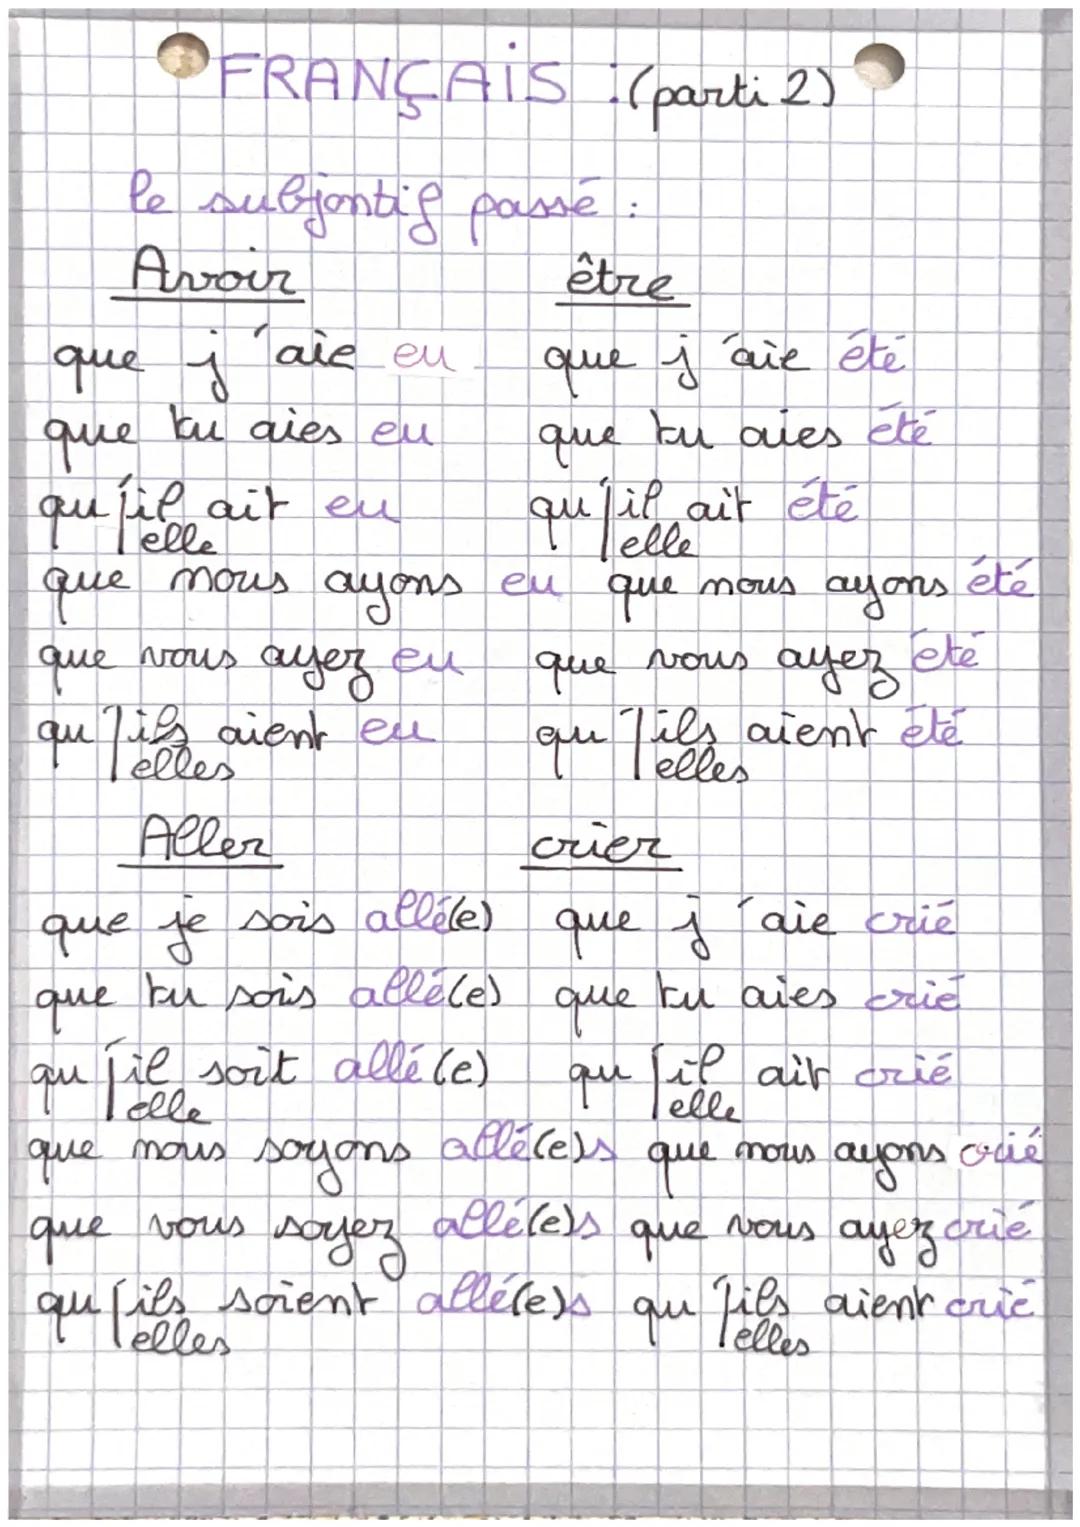 FRANÇAIS : (parti 2)
le subjontif passé :
Avoir être
que j'aie eu que j'aie été
que tu aies eu que tu aies été
qu'il ait eu qu'il ait été
elle elle
que nous ayons eu que nous ayons été
que vous ayez eu que vous ayez été
qu'ils aient eu qu'ils aient été
elles elles
Aller crier
que je sois allé(e) que j'aie crié
que tu sois allé(e) que tu aies crié
qu'il soit allé(e) qu'il ait crié
elle elle
que nous soyons allé(e)s que nous ayons crié
que vous soyez allé(e)s que vous ayez crié
qu'ils soient allé(e)s qu'ils aient crié
elles elles